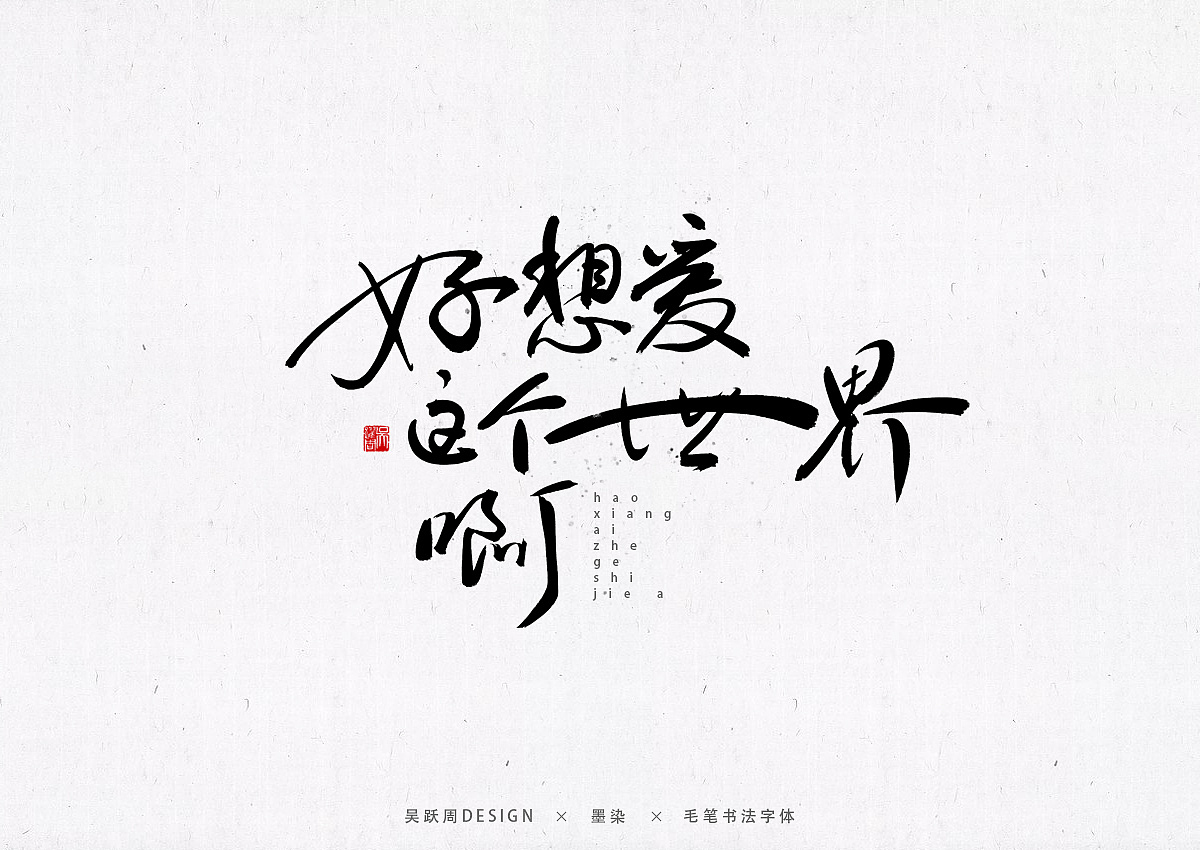 好想爱
这个世界
啊
hao
xiang
ai
zhe
ge
shi
jie a
吴跃周DESIGN × 墨染 × 毛笔书法字体